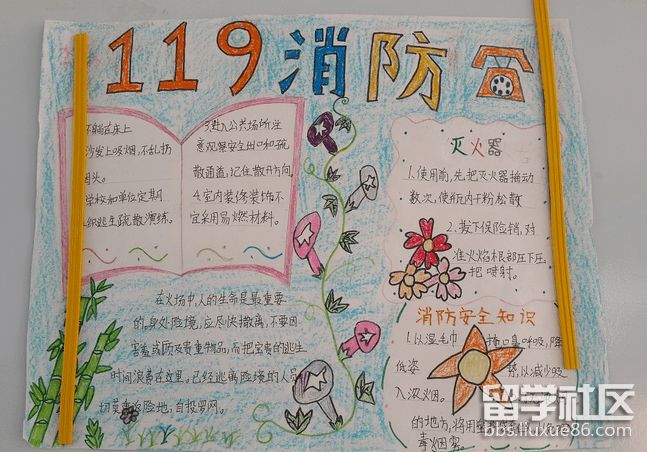 119消防
不躺在床上
沙发上吸烟,不乱扔
烟头。
学校和单位定期
织逃生疏散演练。
3.进入公共场所注
意观察安全出口和疏
散通道,记住散开方向,
4.室内装修装饰不
宜采用易燃材料。
在火场中,人的生命是最重要
的,身处险境,应尽快撤离,不要因
害羞或顾及贵重物品,而把宝贵的逃生
时间浪费在这里。已经逃离险境的人员
切莫重返险地,自投罗网。
灭火器
1.使用前,先把灭火器摇动
数次,使瓶内干粉松散
2.拨下保险销,对
准火焰根部压下压
把喷射。
消防安全知识
1.以湿毛巾掩口鼻呼吸,降
低姿势,以减少吸
入浓烟。
的地方,将用
毒烟雾。
留学社区
bbs.liuxue86.com